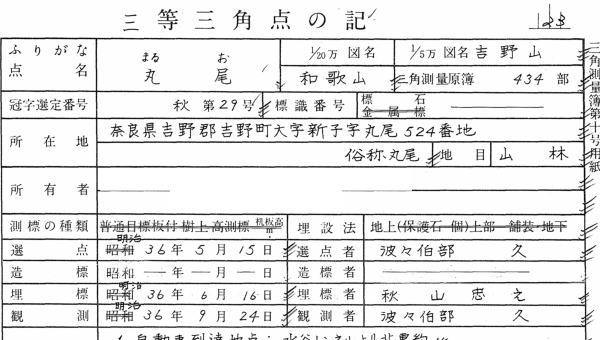 三等三角点の記
ふりがな まる お 1/20万 図名 1/5万 図名 吉野山
点名 丸尾 和歌山 三角測量原簿 434 部
冠字選定番号 秋 第29号 標識番号 標石 金属標
所在地 奈良県吉野郡吉野町大字新子字丸尾524番地
俗称丸尾 地目 山林
所有者
測標の種類 普通目標板付樹上高測標 機板高 m 埋設法 地上(保護石 個)上部 舗装・地下
選点 昭和 明治 36年5月15日 選点者 波々伯部 久
造標 昭和 年 月 日 造標者
埋標 昭和 明治 36年6月16日 埋標者 秋山忠之
観測 昭和 明治 36年9月24日 観測者 波々伯部 久
1 自動車到達地点:
三角測量簿第十号用紙